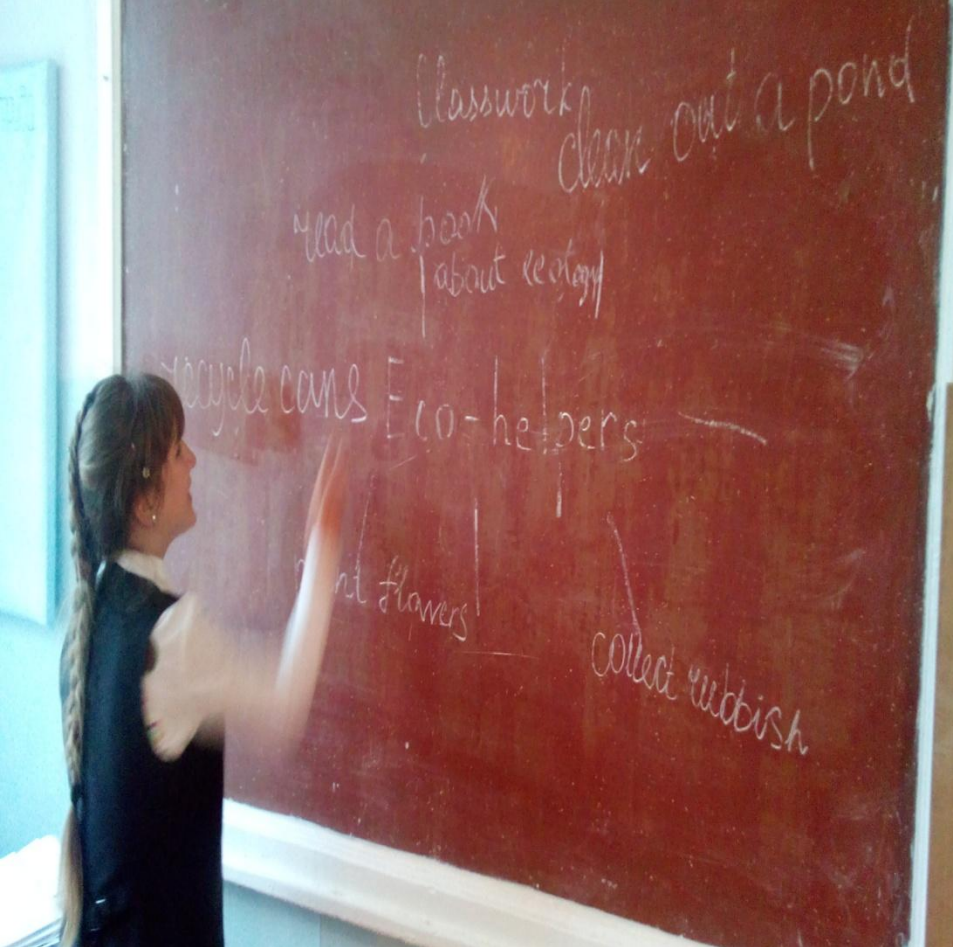 Classwork
clean out a pond
read a book
about ecology
recycle cans
Eco-helpers
flowers
collect rubbish